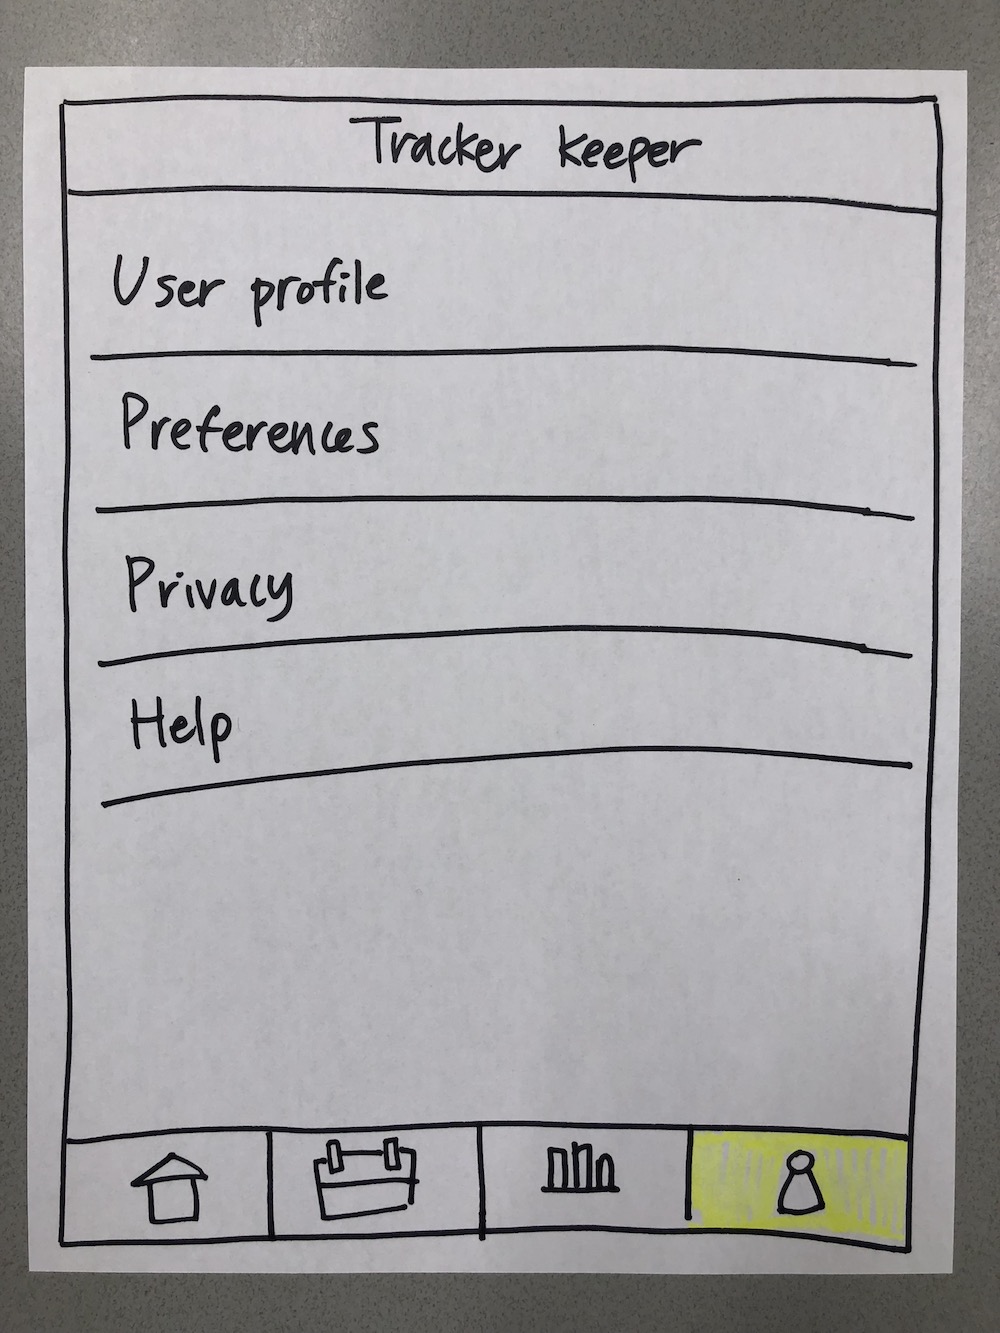 Tracker Keeper
User profile
Preferences
Privacy
Help